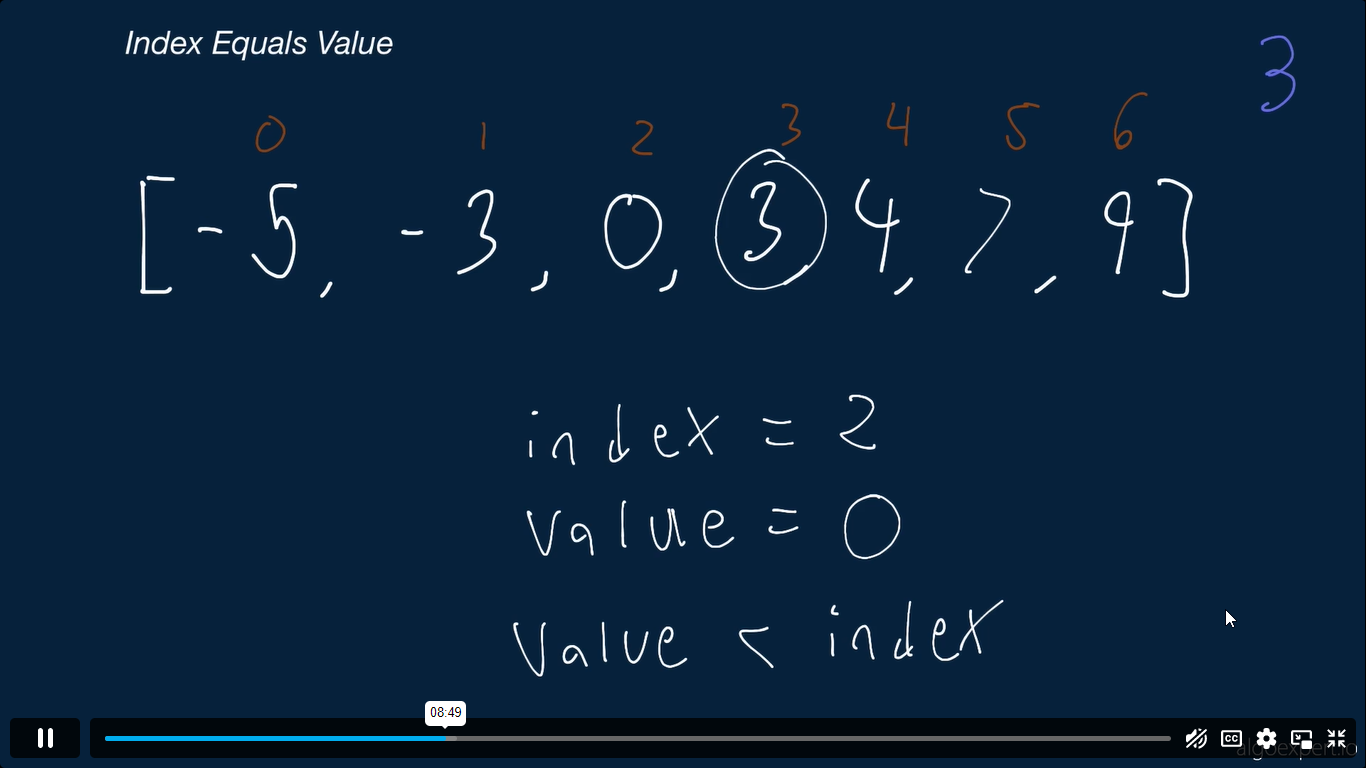 Index Equals Value
3
0 1 2 3 4 5 6
[-5, -3, 0, 3 4, 7, 9]
index = 2
value = 0
Value < index
08:49
CC
algoexpert.io